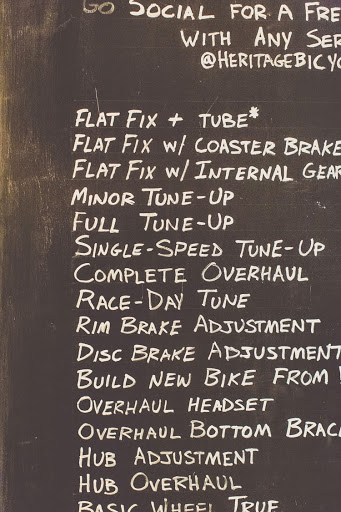 GO SOCIAL FOR A FRE
WITH ANY SER
@HERITAGEBICYC
FLAT FIX + TUBE*
FLAT FIX W/ COASTER BRAKE
FLAT FIX W/ INTERNAL GEAR
MINOR TUNE-UP
FULL TUNE-UP
SINGLE-SPEED TUNE-UP
COMPLETE OVERHAUL
RACE-DAY TUNE
RIM BRAKE ADJUSTMENT
DISC BRAKE ADJUSTMENT
BUILD NEW BIKE FROM
OVERHAUL HEADSET
OVERHAUL BOTTOM BRAC
HUB ADJUSTMENT
HUB OVERHAUL
BASIC WHEEL TRUE